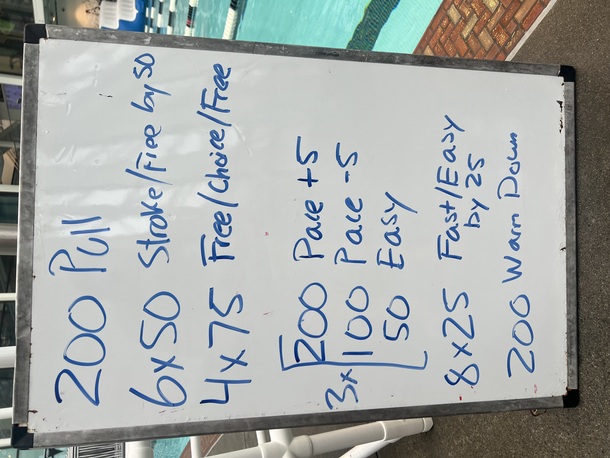 200 Pull
6x50 Stroke/Free by 50
4x75 Free/Choice/Free
3x [200 Pace +5
100 Pace -5
50 Easy
8x25 Fast/Easy
by 25
200 Warm Down